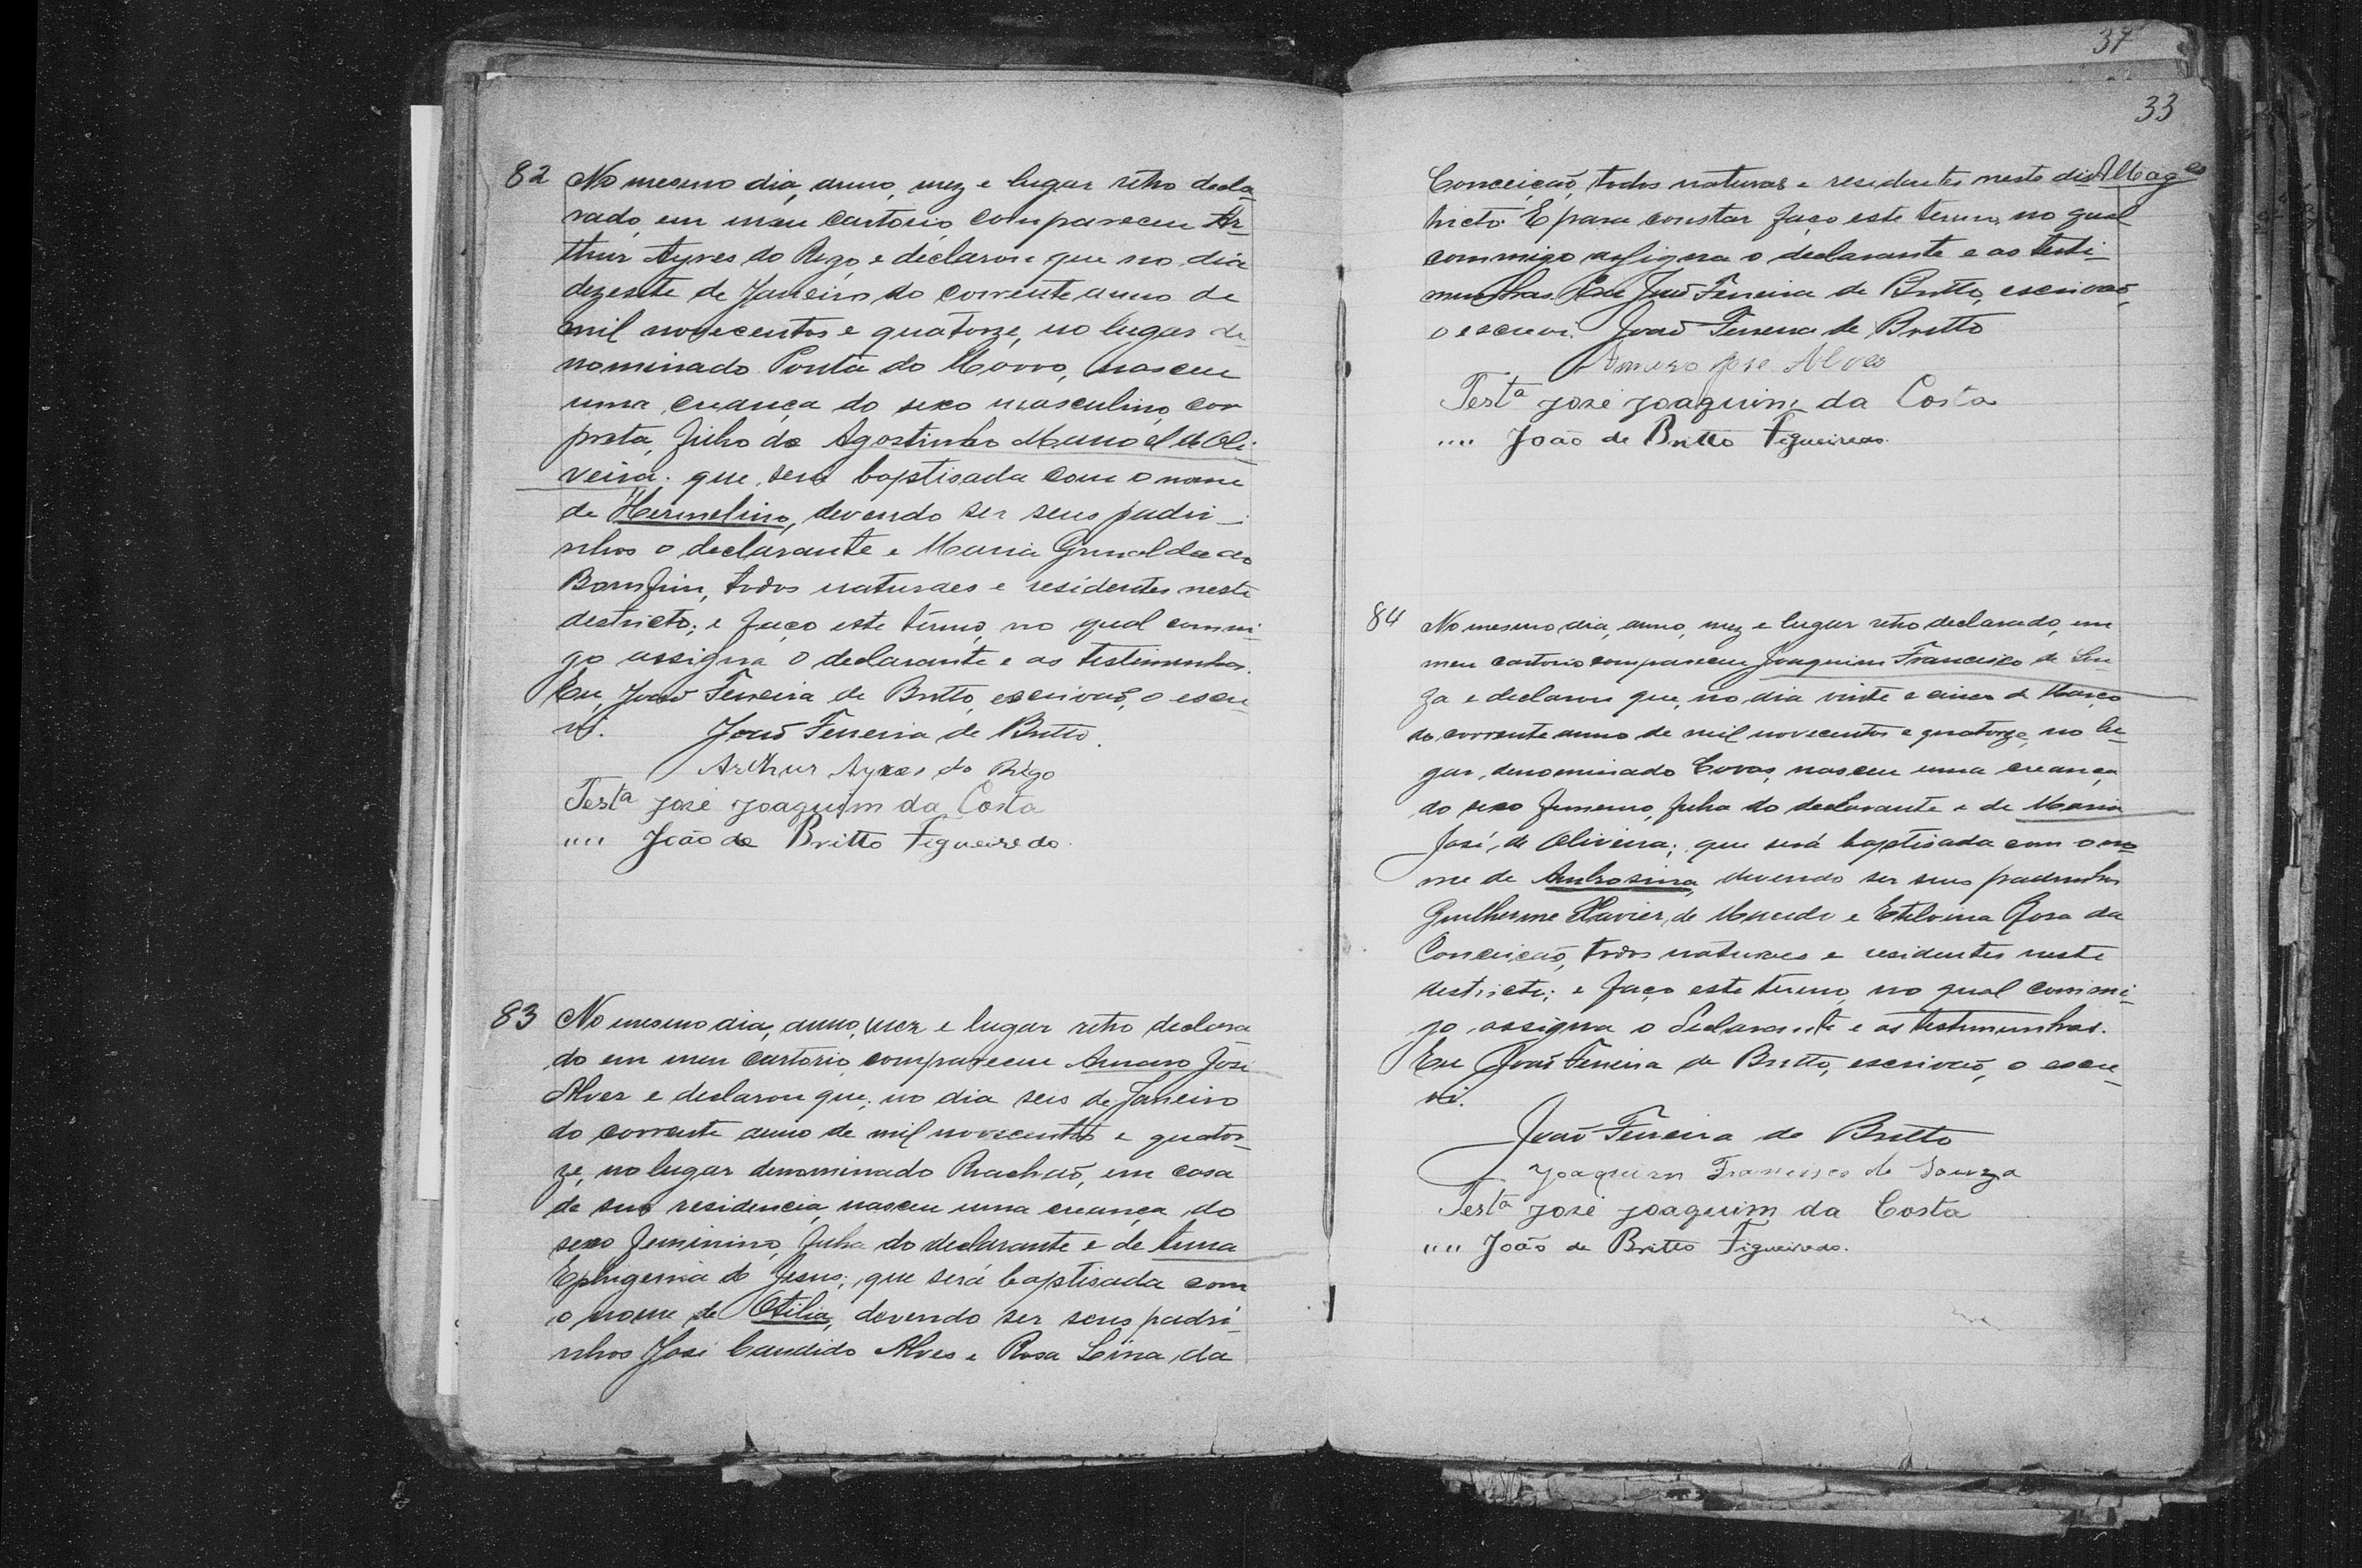 82 No mesmo dia, anno, mez e lugar retro decla-
rado, em meu cartorio, compareceu Ar-
thur Ayres do Rego e declarou que no dia
dezesete de Janeiro do corrente anno de
mil novecentos e quatorze, no lugar de-
nominado Ponta do Morro, nasceu
uma creança do sexo masculino, cor
preta, filho de Agostinho Manoel de Oli-
veira; que será baptisada com o nome
de Hermelino, devendo ser seus padri-
nhos o declarante e Maria do
Bomfim, todos naturaes e residentes neste
destricto; e faço este termo, no qual commi-
go assigna o declarante e as testimunhas.
Eu, João Ferreira de Britto, escrivaõ, o escre-
vi. João Ferreira de Britto.
Arthur Ayres do Rêgo
Testª José Joaquim da Costa
"" João de Britto Figueiredo.
83 No mesmo dia, anno, mez e lugar retro declara
do em meu cartorio, compareceu Amaro José
Alves e declarou que, no dia seis de Janeiro
do corrente anno de mil novecentos e quator-
ze, no lugar denominado Riachaõ, em casa
de sua residencia, nasceu uma creança do
sexo feminino, filha do declarante e de Anna
Ephigenia de Jesus; que será baptisada com
o nome de Otilia, devendo ser seus padri-
nhos José Candido Alves e Rosa Lina da
37
33
Conceiçaõ, todos naturaes e residentes neste dis
tricto. E para constar faço este termo, no qual
commigo assigna o declarante e as testi-
munhas. Eu João Ferreira de Britto, escrivaõ,
o escrevi. João Ferreira de Britto
Amaro José Alves
Testª José Joaquim da Costa
"" João de Britto Figueiredo.
84 No mesmo dia, anno, mez e lugar retro declarado, em
meu cartorio compareceu Joaquim Francisco de Sou-
za e declarou que, no dia vinte e cinco de Março
do corrente anno de mil novecentos e quatorze, no lu-
gar denominado Covas, nasceu uma creança
do sexo femenino, filha do declarante e de Maria
José de Oliveira; que será baptisada com o no-
me de Ambrosina, devendo ser seus padrinhos
Guilherme Xavier de Macedo e Etelvina Rosa da
Conceiçaõ, todos naturaes e residentes neste
destricto; e faço este termo, no qual commi-
go assigna o declarante e as testimunhas.
Eu João Ferreira de Britto, escrivaõ, o escre-
vi.
João Ferreira de Britto
Joaquim Francisco de Souza
Testª José Joaquim da Costa
"" João de Britto Figueiredo.